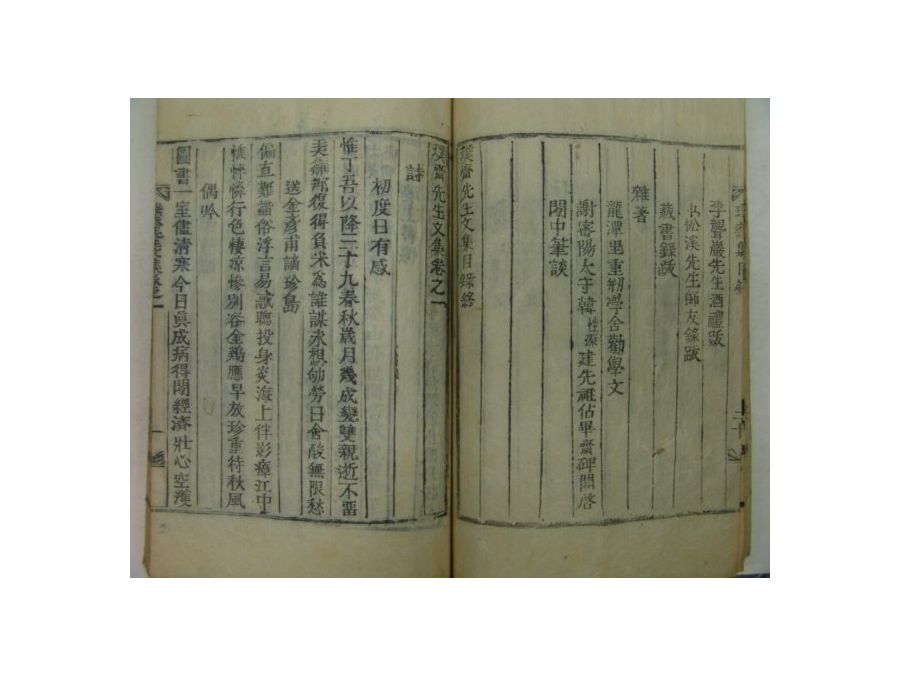 李聾巖先生酒禮跋
松溪先生師友錄跋
藏書錄跋
雜著
龍潭里重刱學舍勸學文
謝密陽太守韓性源建先祖佔畢齋碑閣啓
閒中筆談
璞齋先生文集目錄終
璞齋先生文集卷之一
詩
初度日有感
惟丁吾以降三十九春秋歲月幾成變雙親逝不留
美雛那復得負米爲誰謀永想劬勞日含酸無限愁
送金彥甫謫珍島
偏直難諧俗浮言易惑聰投身炎海上伴影瘴江中
憔悴憐行色悽凉慘別容金鷄應早放珍重待秋風
偶吟
圖書一室儘清寒今日眞成病得閒經濟壯心空濩